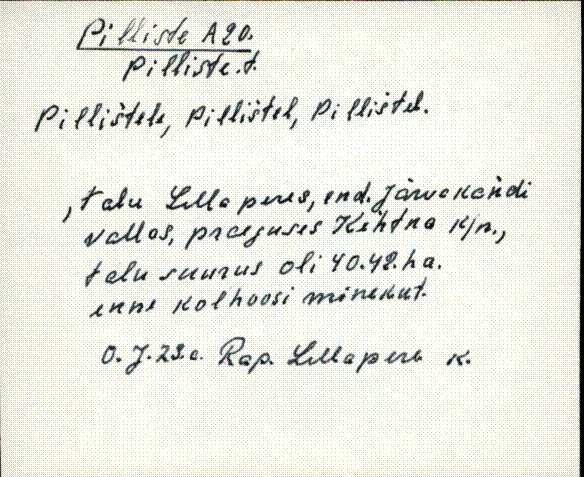 Pilliste A20.
Pilliste.t.
Pillištele, Pillištel, Pillištel.
, talu Lellaperes, end. Järvakandi
vallas, praeguses Kehtna k/n.,
talu suurus oli 40.42.ha.
enne kolhoosi minekut.
O. J. 23.a. Rap. Lellapere k.